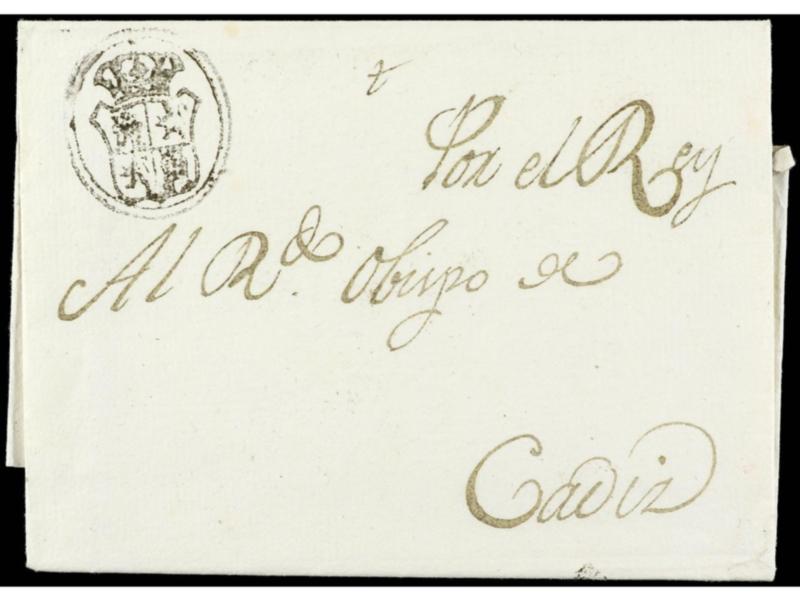 Por el Rey
Al Rdo. Obispo de
Cadiz